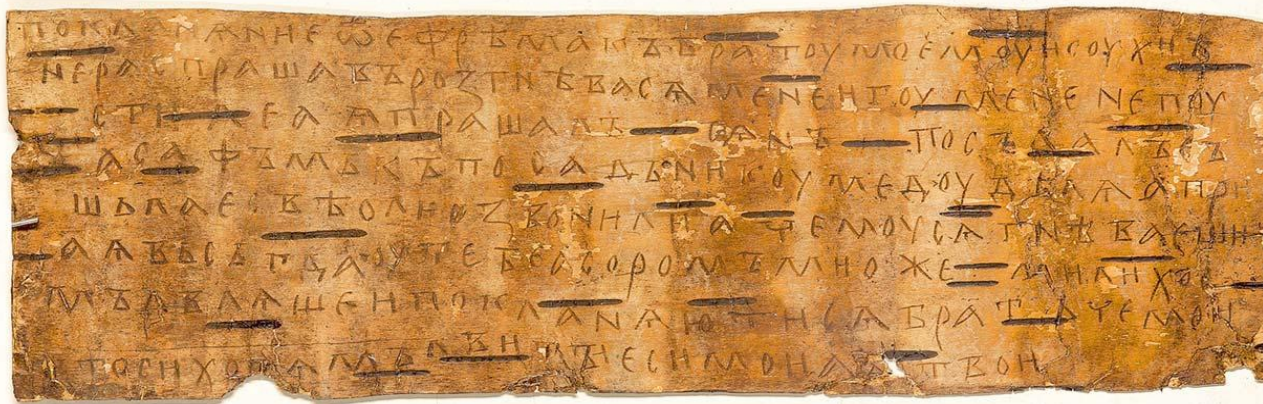 покланѧниеѿефрѣмакъбратоумоемоуисоухиѣ
нераспрашавърозгнѣвасѧменеигоумененепоу
стилеаѧпрашалъсѧнъпосълалъсъ
асафъмькъпосадьникоумедоудѣлѧапри
шьлаесвѣолизвонилиачемоусѧгнѣваеши
аѧвьсьгдаоутебеасоромъмиожемилихо
мълвлѧшеипокланѧютисѧбратьчемои
тосихотѧмълвитыесимоиаѧтвои